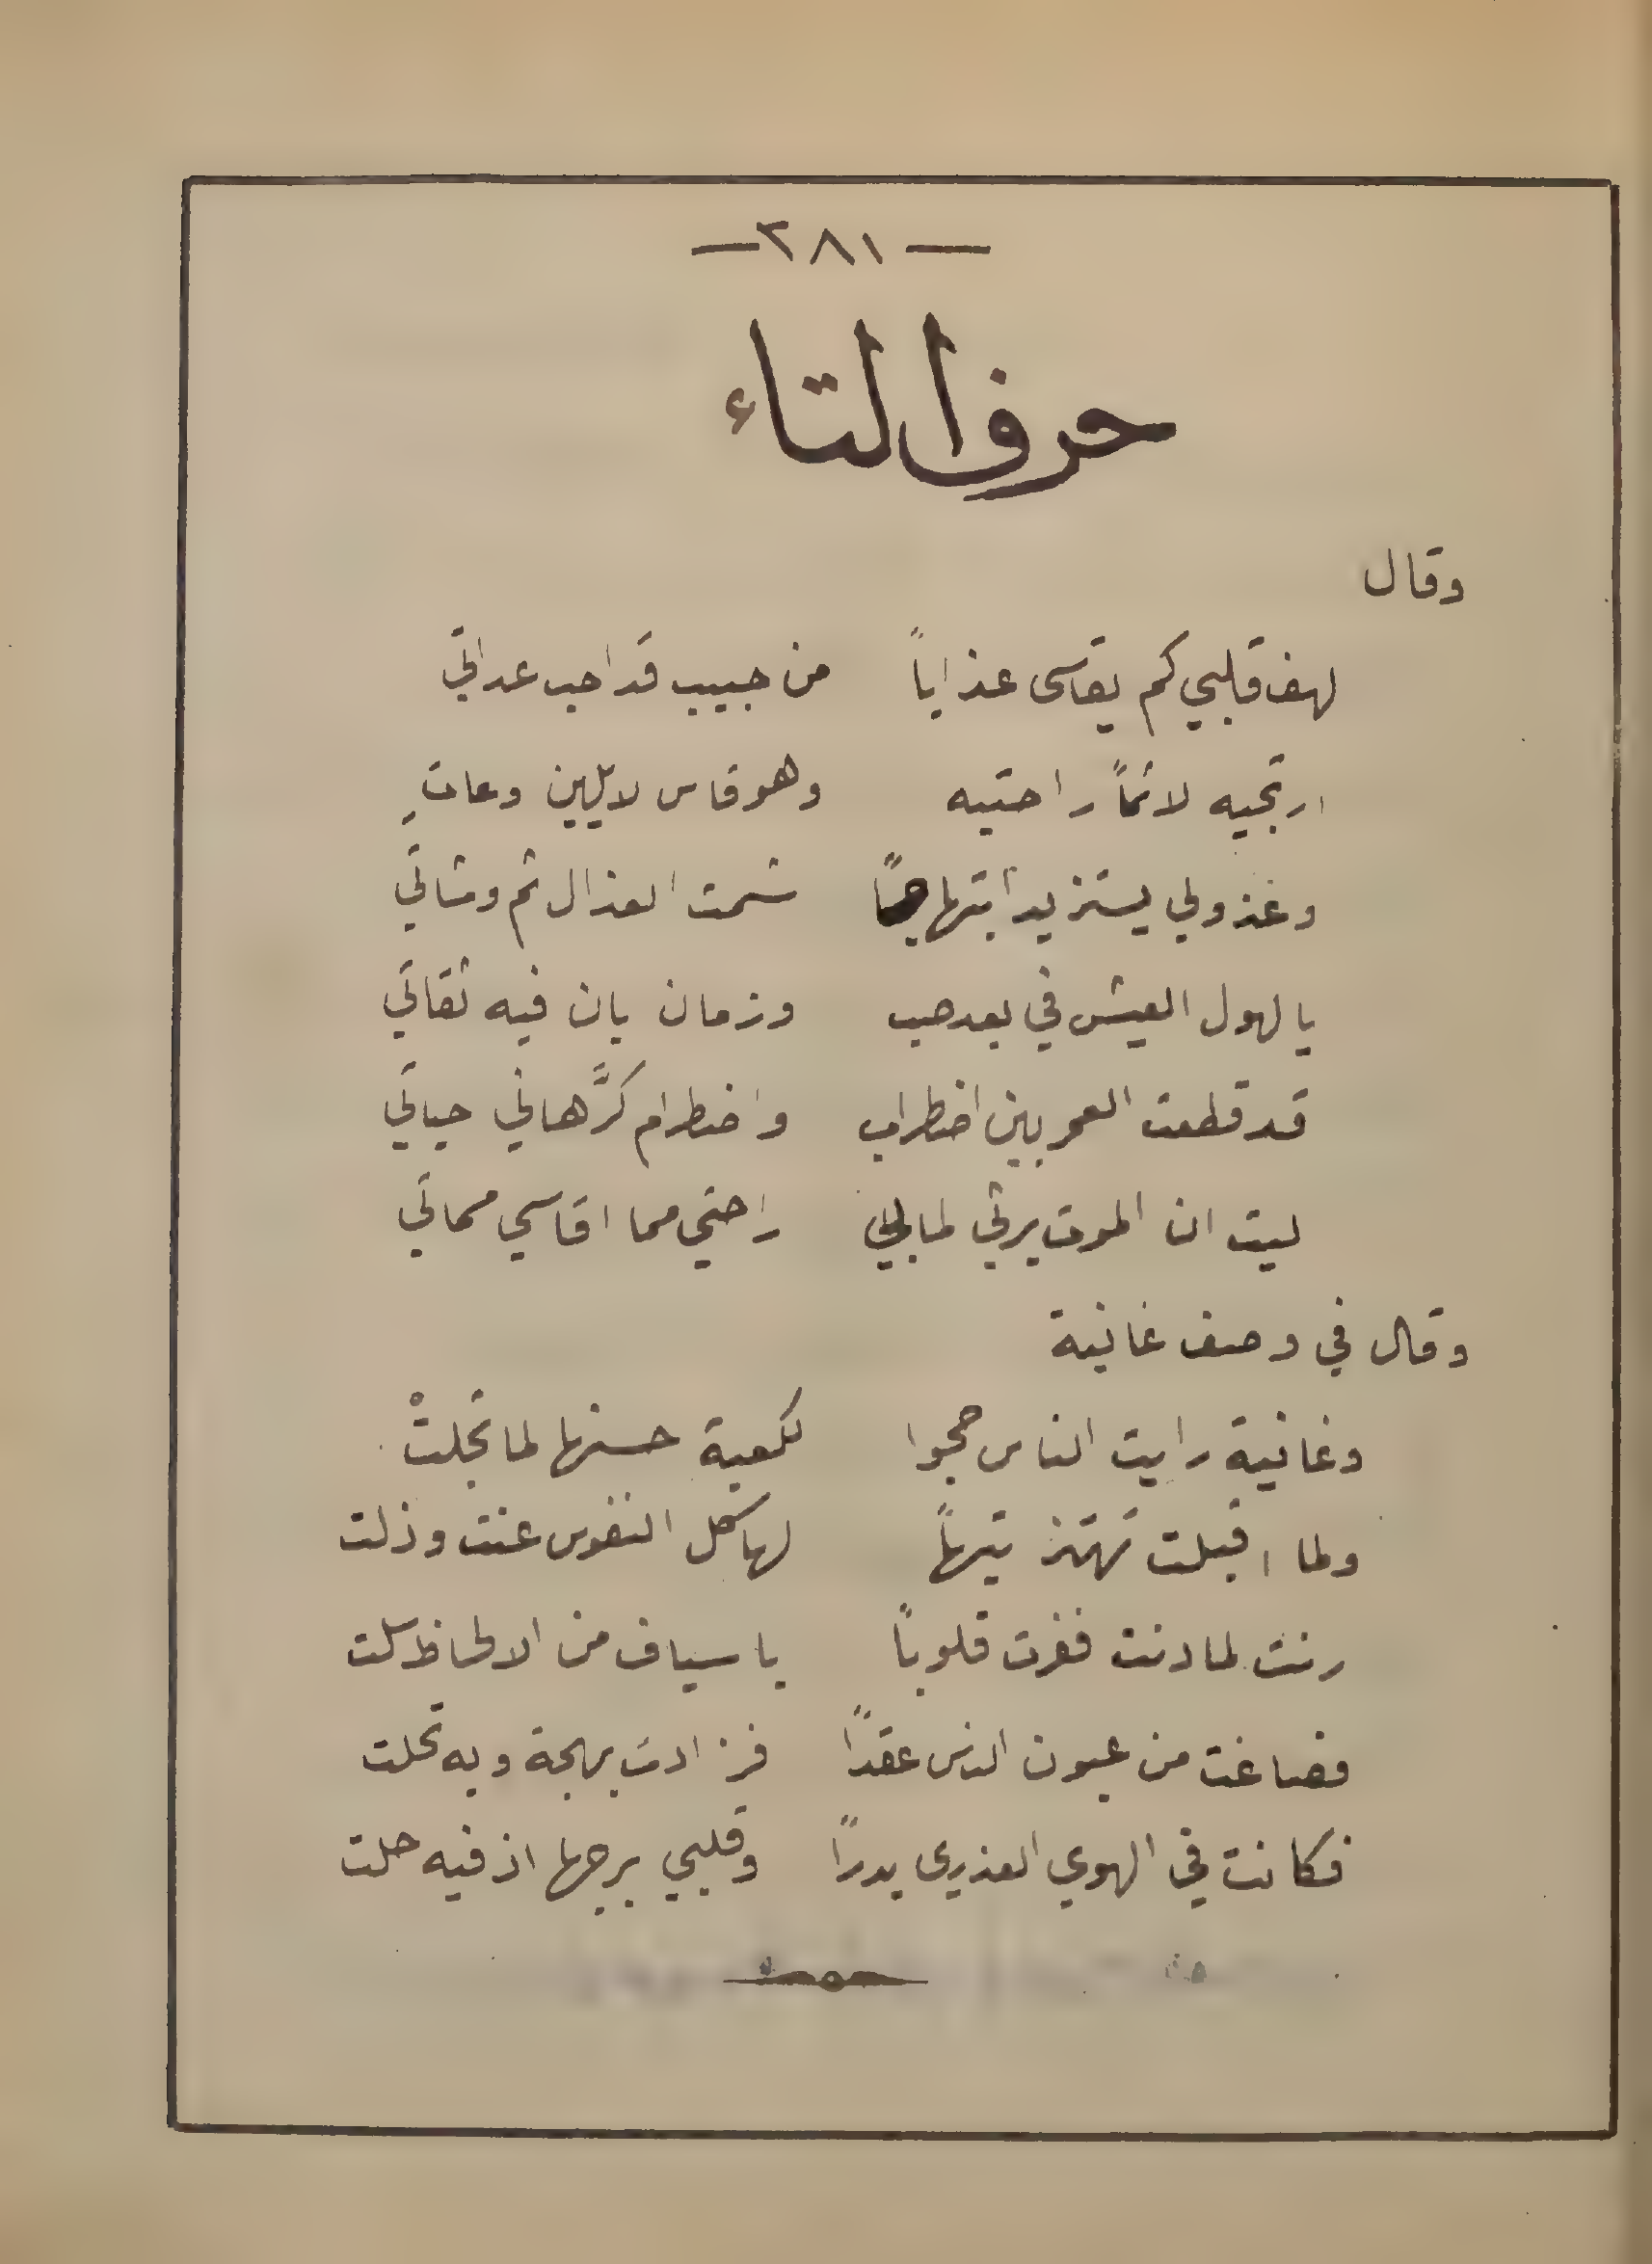 — ٣٨١ —
حرف التاء
وقال
لهف قلبي كم يقاسى عذاباً من حبيب قد احب عداتي
ارتجيه لاثماً راحتيه وهو قاس لا يلين وعاتٍ
وعذولي يستزيد ابتهاجاً شمت العذال ثم وشاتي
يا لهول العيش في بعد حب وزمان بان فيه ثقاتي
قد قطعت العمر بين اضطراب واضطرام كرَّهاني حياتي
ليت ان الموت يرثي لما بي راحتي مما اقاسي مماتي
وقال في وصف غانية
وغانية رايت الناس حجوا لكعبة حسنها لما تجلتْ
ولما اقبلت تهتز تيهاً لها كل النفوس عنت وذلت
رنت لما دنت ففرت قلوباً باسياف من الالحاظ سلت
فصاغت من عيون الناس عقداً فزادت بهجة وبه تحلت
فكانت في الهوي العذري بدراً وقلبي برجها اذ فيه حلت